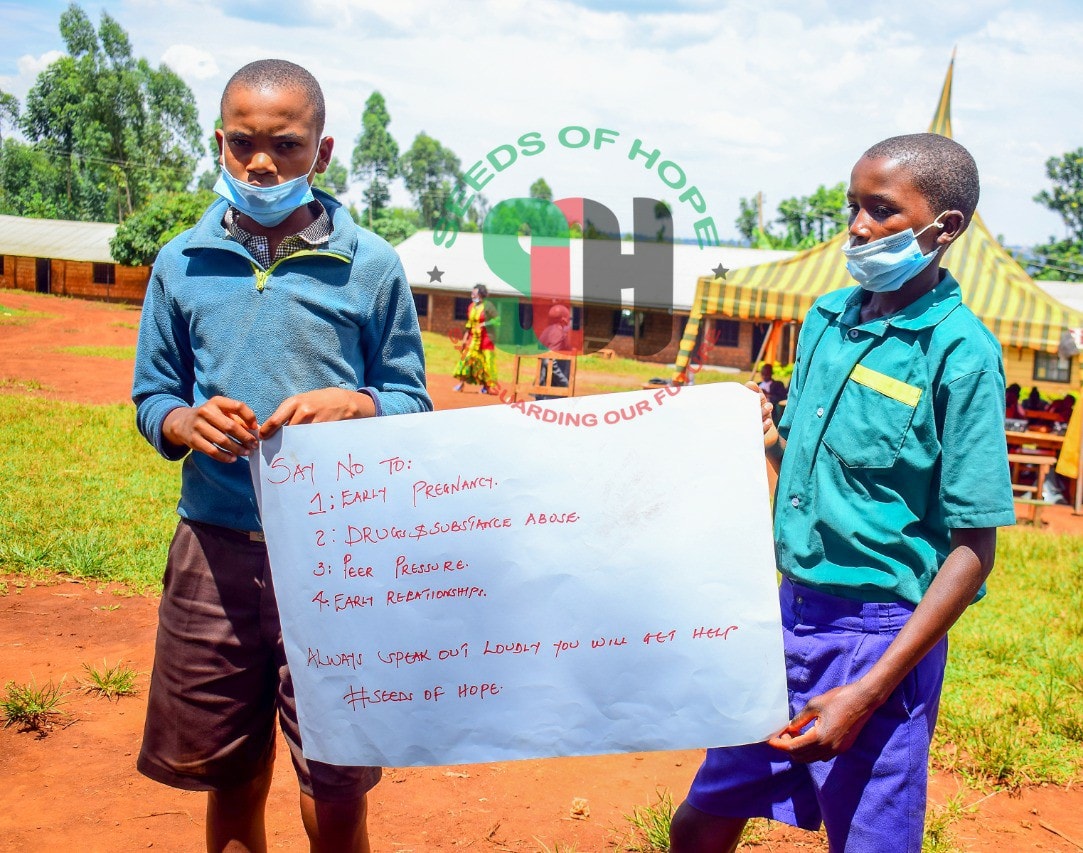 SEEDS OF HOPE
SH
GUARDING OUR FU
SAY NO TO:
1; EARLY PREGNANCY.
2: DRUGS $ SUBSTANCE ABUSE.
3: PEER PRESSURE.
4: EARLY RELATIONSHIPS.
ALWAYS SPEAK OUT LOUDLY YOU WILL GET HELP
#SEEDS OF HOPE.